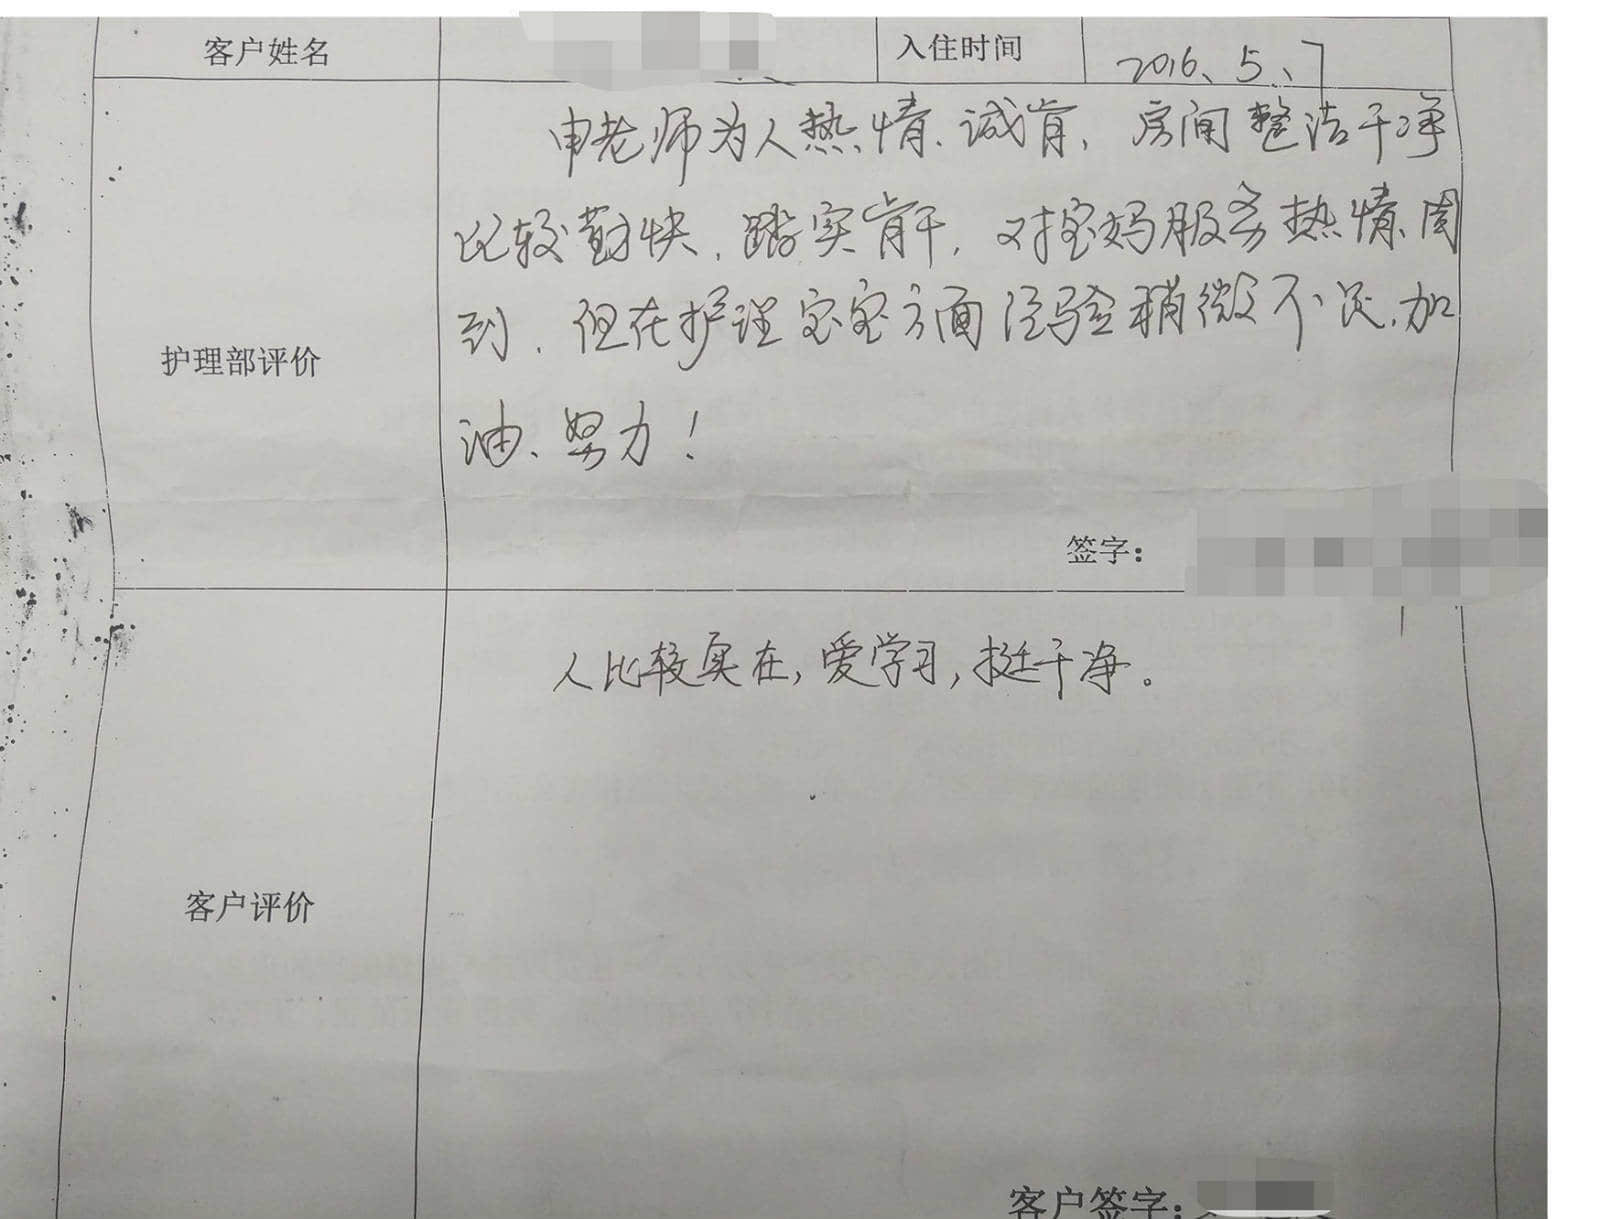 客户姓名 入住时间 2016、5、7
申老师为人热情、诚肯，房间整洁干净
比较勤快、踏实肯干，对宝妈服务热情周
护理部评价
到，但在护理宝宝方面经验稍微不足，加
油、努力！
签字：
人比较实在，爱学习，挺干净。
客户评价
客户签字：